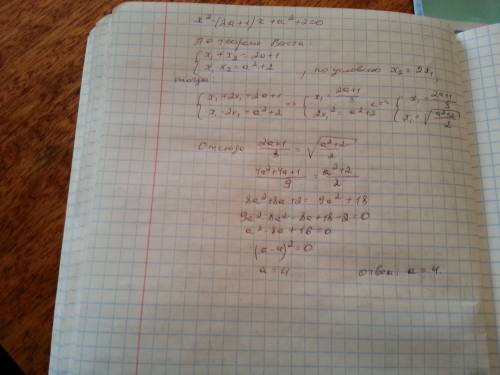 x² - (2a+1)x + a² + 2 = 0
по теореме Виета
{ x₁ + x₂ = 2a+1
{ x₁ x₂ = a² + 2 , по условию x₂ = 2x₁,
тогда:
{ x₁ + 2x₁ = 2a+1 => { x₁ = (2a+1)/3 <=> { x₁ = (2a+1)/3
{ x₁ · 2x₁ = a² + 2 { 2x₁² = a² + 2 { x₁ = √((a²+2)/2)
Отсюда (2a+1)/3 = √((a²+2)/2)
(4a²+4a+1)/9 = (a²+2)/2
8a² + 8a + 2 = 9a² + 18
9a² - 8a² - 8a + 18 - 2 = 0
a² - 8a + 16 = 0
(a - 4)² = 0
a = 4 ответ: a = 4.